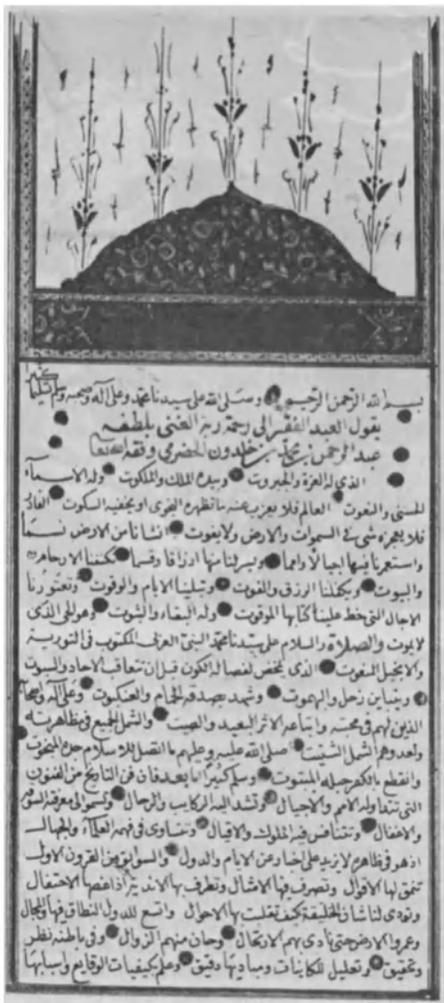 كثيرا
بسم الله الرحمن الرحيم وصلى الله على سيدنا محمد وعلى آله وصحبه وسلم تسليما
يقول العبد الفقير الى رحمة ربه الغنى بلطفه
عبد الرحمن بن محمد بن خلدون الحضرمي وفقه الله تعا
الذى له العزة والجبروت وبيده الملك والملكوت وله الاسماء
الحسنى والنعوت العالم فلا يعزب عنه ما تظهره النجوى او يخفيه السكوت القادر
فلا يعجزه شئ فى السموات والارض ولا يفوت انشأنا من الارض نسما
واستعمرنا فيها اجيالا وامما ويسر لنا منها ارزاقا وقسما تكنفنا الارحام
والبيوت ويكفلنا الرزق والقوت وتبلينا الايام والوقوت وتعتورنا
الاجال التى خط علينا كتابها الموقوت وله البقاء والثبوت وهو الحى الذى
لا يموت والصلاة والسلام على سيدنا محمد النبى العربى المكتوب فى التورية
والانجيل المنعوت الذى تمخض لفصاله الكون قبل ان تتعاقب الاحاد والسبوت
ويتباين زحل والبهموت وشهد بصدقه الحمام والعنكبوت وعلى آله واصحابه
الذين لهم فى محبته واتباعه الاثر البعيد والصيت والشمل الجميع فى مظاهرته
ولعدوهم الشمل الشتيت صلى الله عليه وعليهم ما اتصل للاسلام جده المبخوت
وانقطع بالكفر حبله المبتوت وسلم كثيرا اما بعد فان فن التاريخ من الفنون
التى تتداوله الامم والاجيال وتشد اليه الركايب والرحال وتسمو الى معرفته السوقة
والاغفال وتتنافس فيه الملوك والاقيال وتتساوى فى فهمه العلماء والجهال
اذ هو فى ظاهره لا يزيد على اخبار عن الايام والدول والسوابق من القرون الاول
تنمق لها الاقوال وتصرف فيها الامثال وتطرف بها الاندية اذا غصها الاحتفال
وتودى لنا شان الخليقة كيف تقلبت بها الاحوال واتسع للدول النطاق فيها والمجال
وعمروا الارض حتى نادى بهم الارتحال وحان منهم الزوال وفى باطنه نظر
وتحقيق وتعليل للكاينات ومباديها دقيق وعلم بكيفيات الوقايع واسبابها